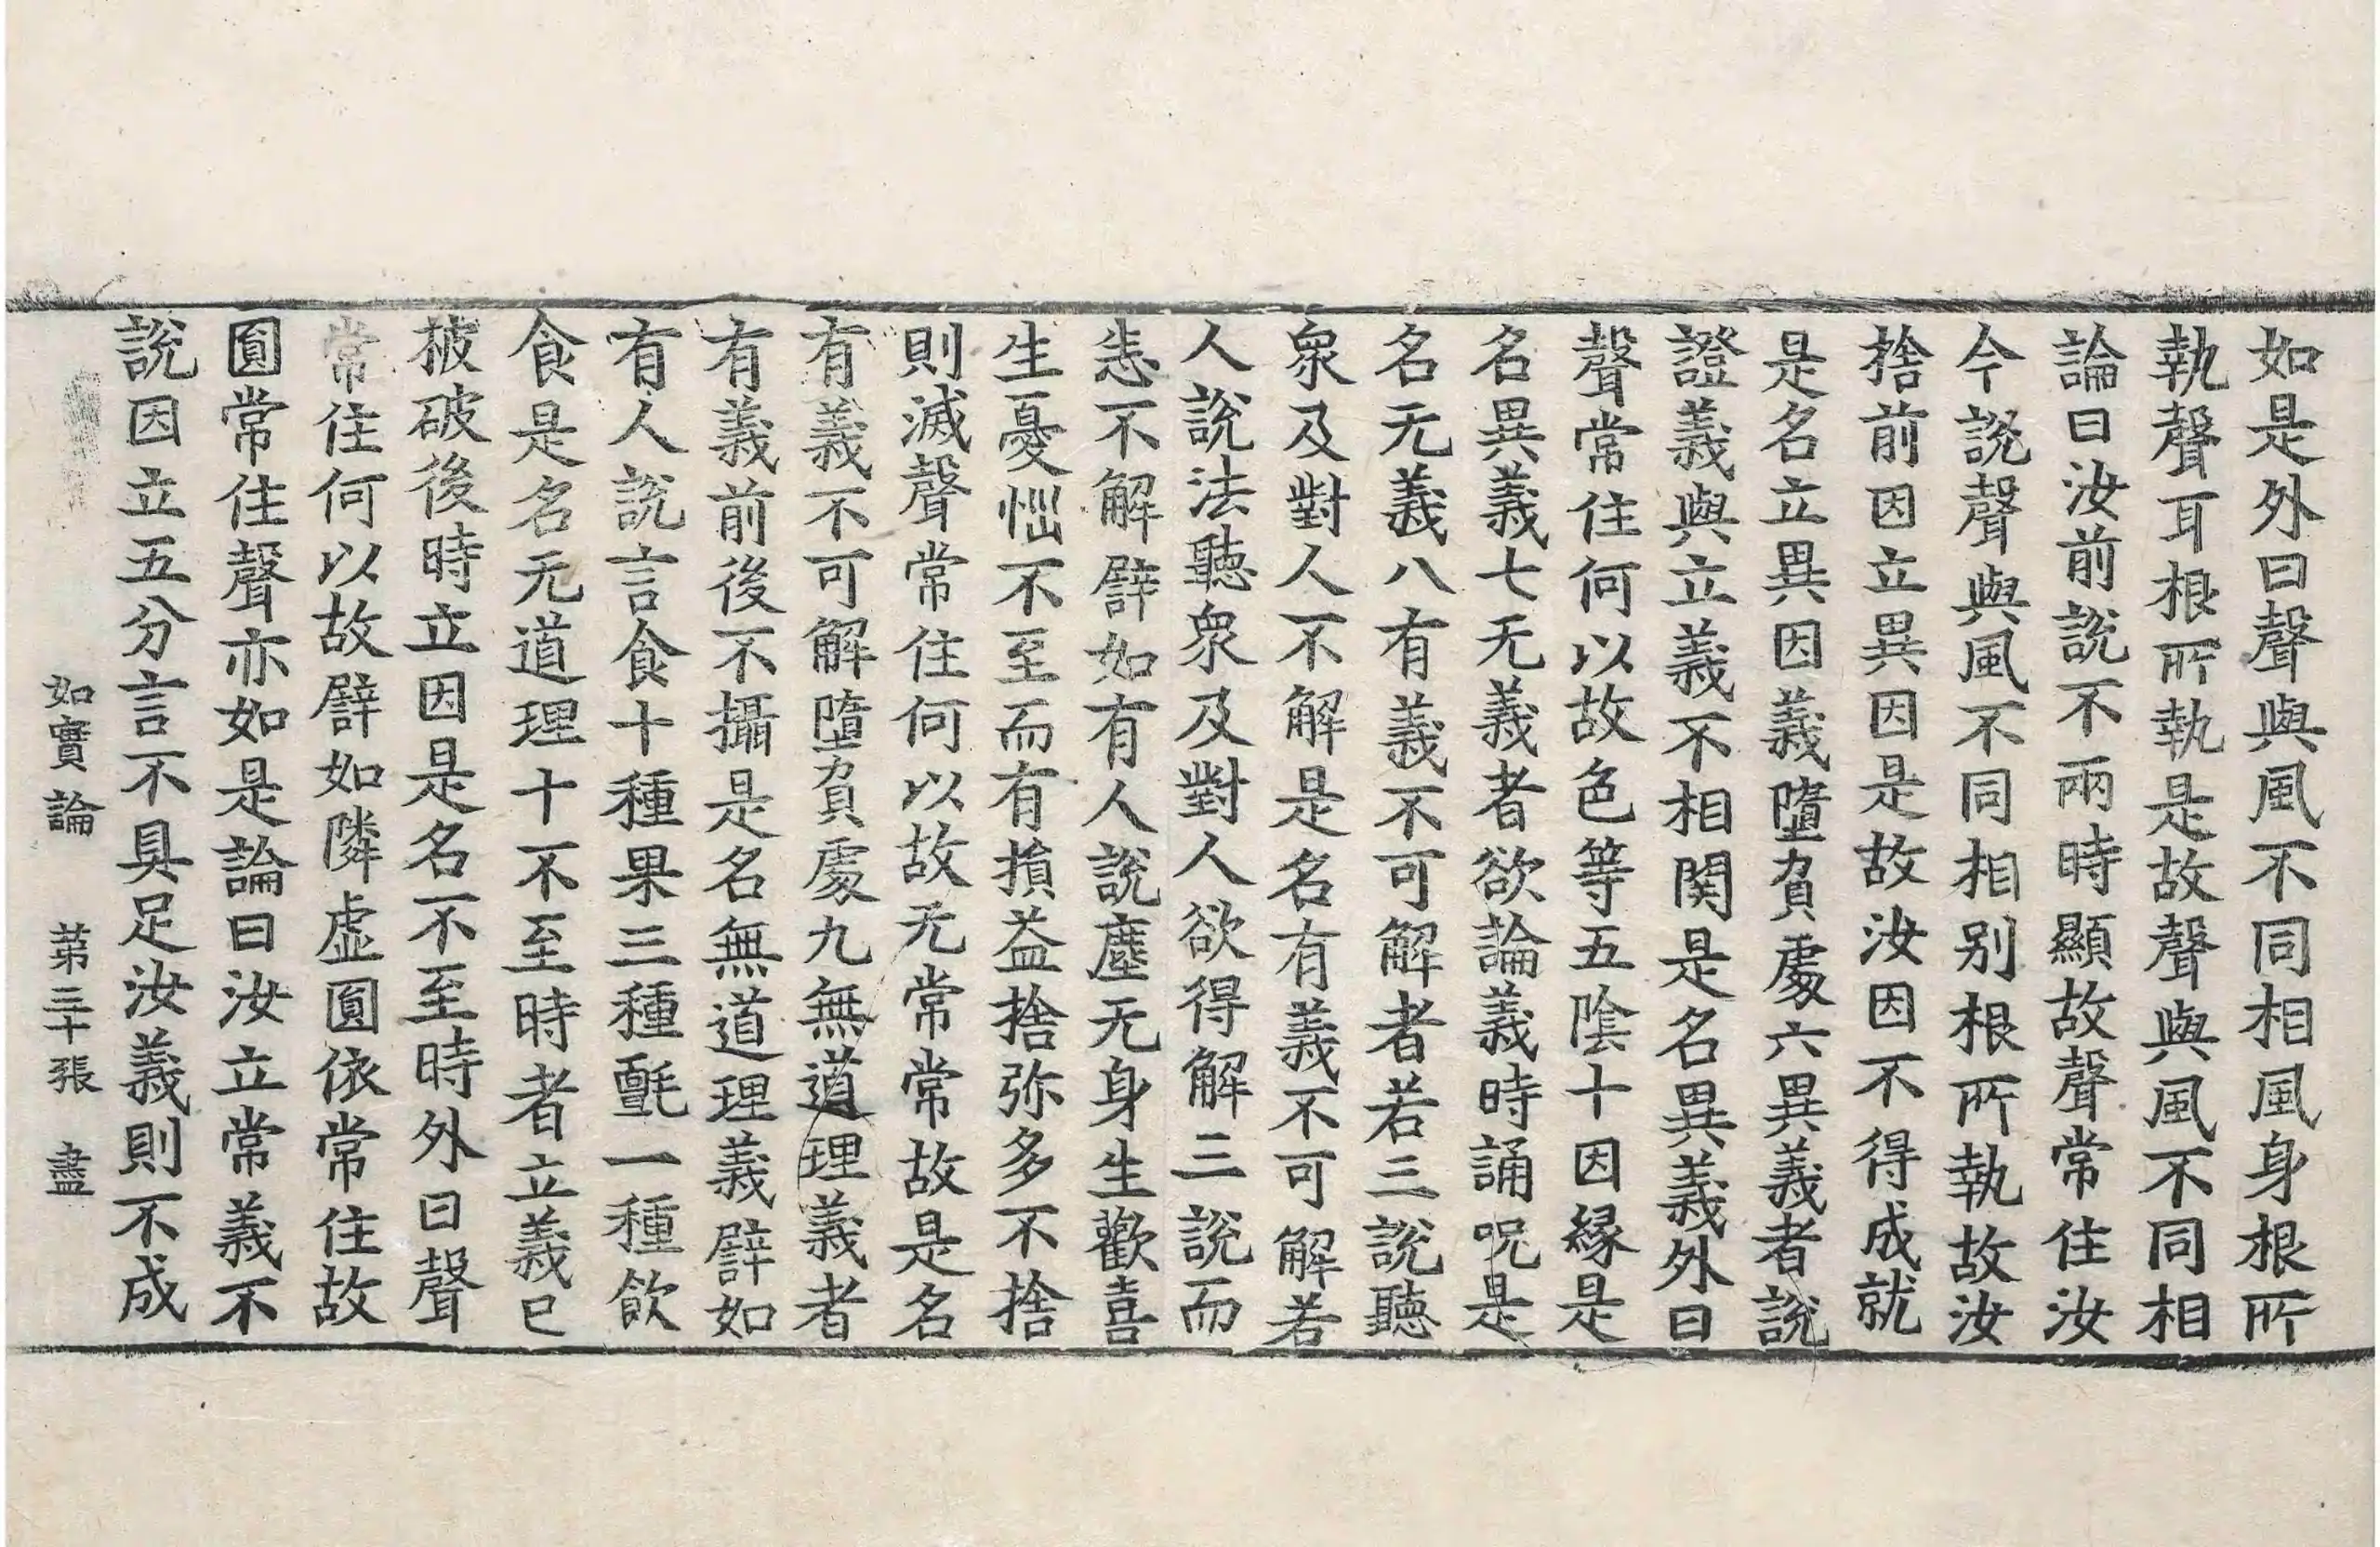 如是外曰聲與風不同相風身根所
執聲耳根所執是故聲與風不同相
論曰汝前說不兩時顯故聲常住汝
今說聲與風不同相別根所執故汝
捨前因立異因是故汝因不得成就
是名立異因義墮負處六異義者說
證義與立義不相関是名異義外曰
聲常住何以故色等五陰十因縁是
名異義七无義者欲論義時誦呪是
名无義八有義不可解者若三說聽
衆及對人不解是名有義不可解若
人說法聽衆及對人欲得解三說而
悉不解譬如有人說塵无身生歡喜
生憂惱不至而有損益捨弥多不捨
則滅聲常住何以故无常常故是名
有義不可解墮負處九無道理義者
有義前後不攝是名無道理義譬如
有人說言食十種果三種氈一種飲
食是名无道理十不至時者立義已
被破後時立因是名不至時外曰聲
常住何以故譬如隣虛圓依常住故
圓常住聲亦如是論曰汝立常義不
說因立五分言不具足汝義則不成
如實論 第三十張 盡